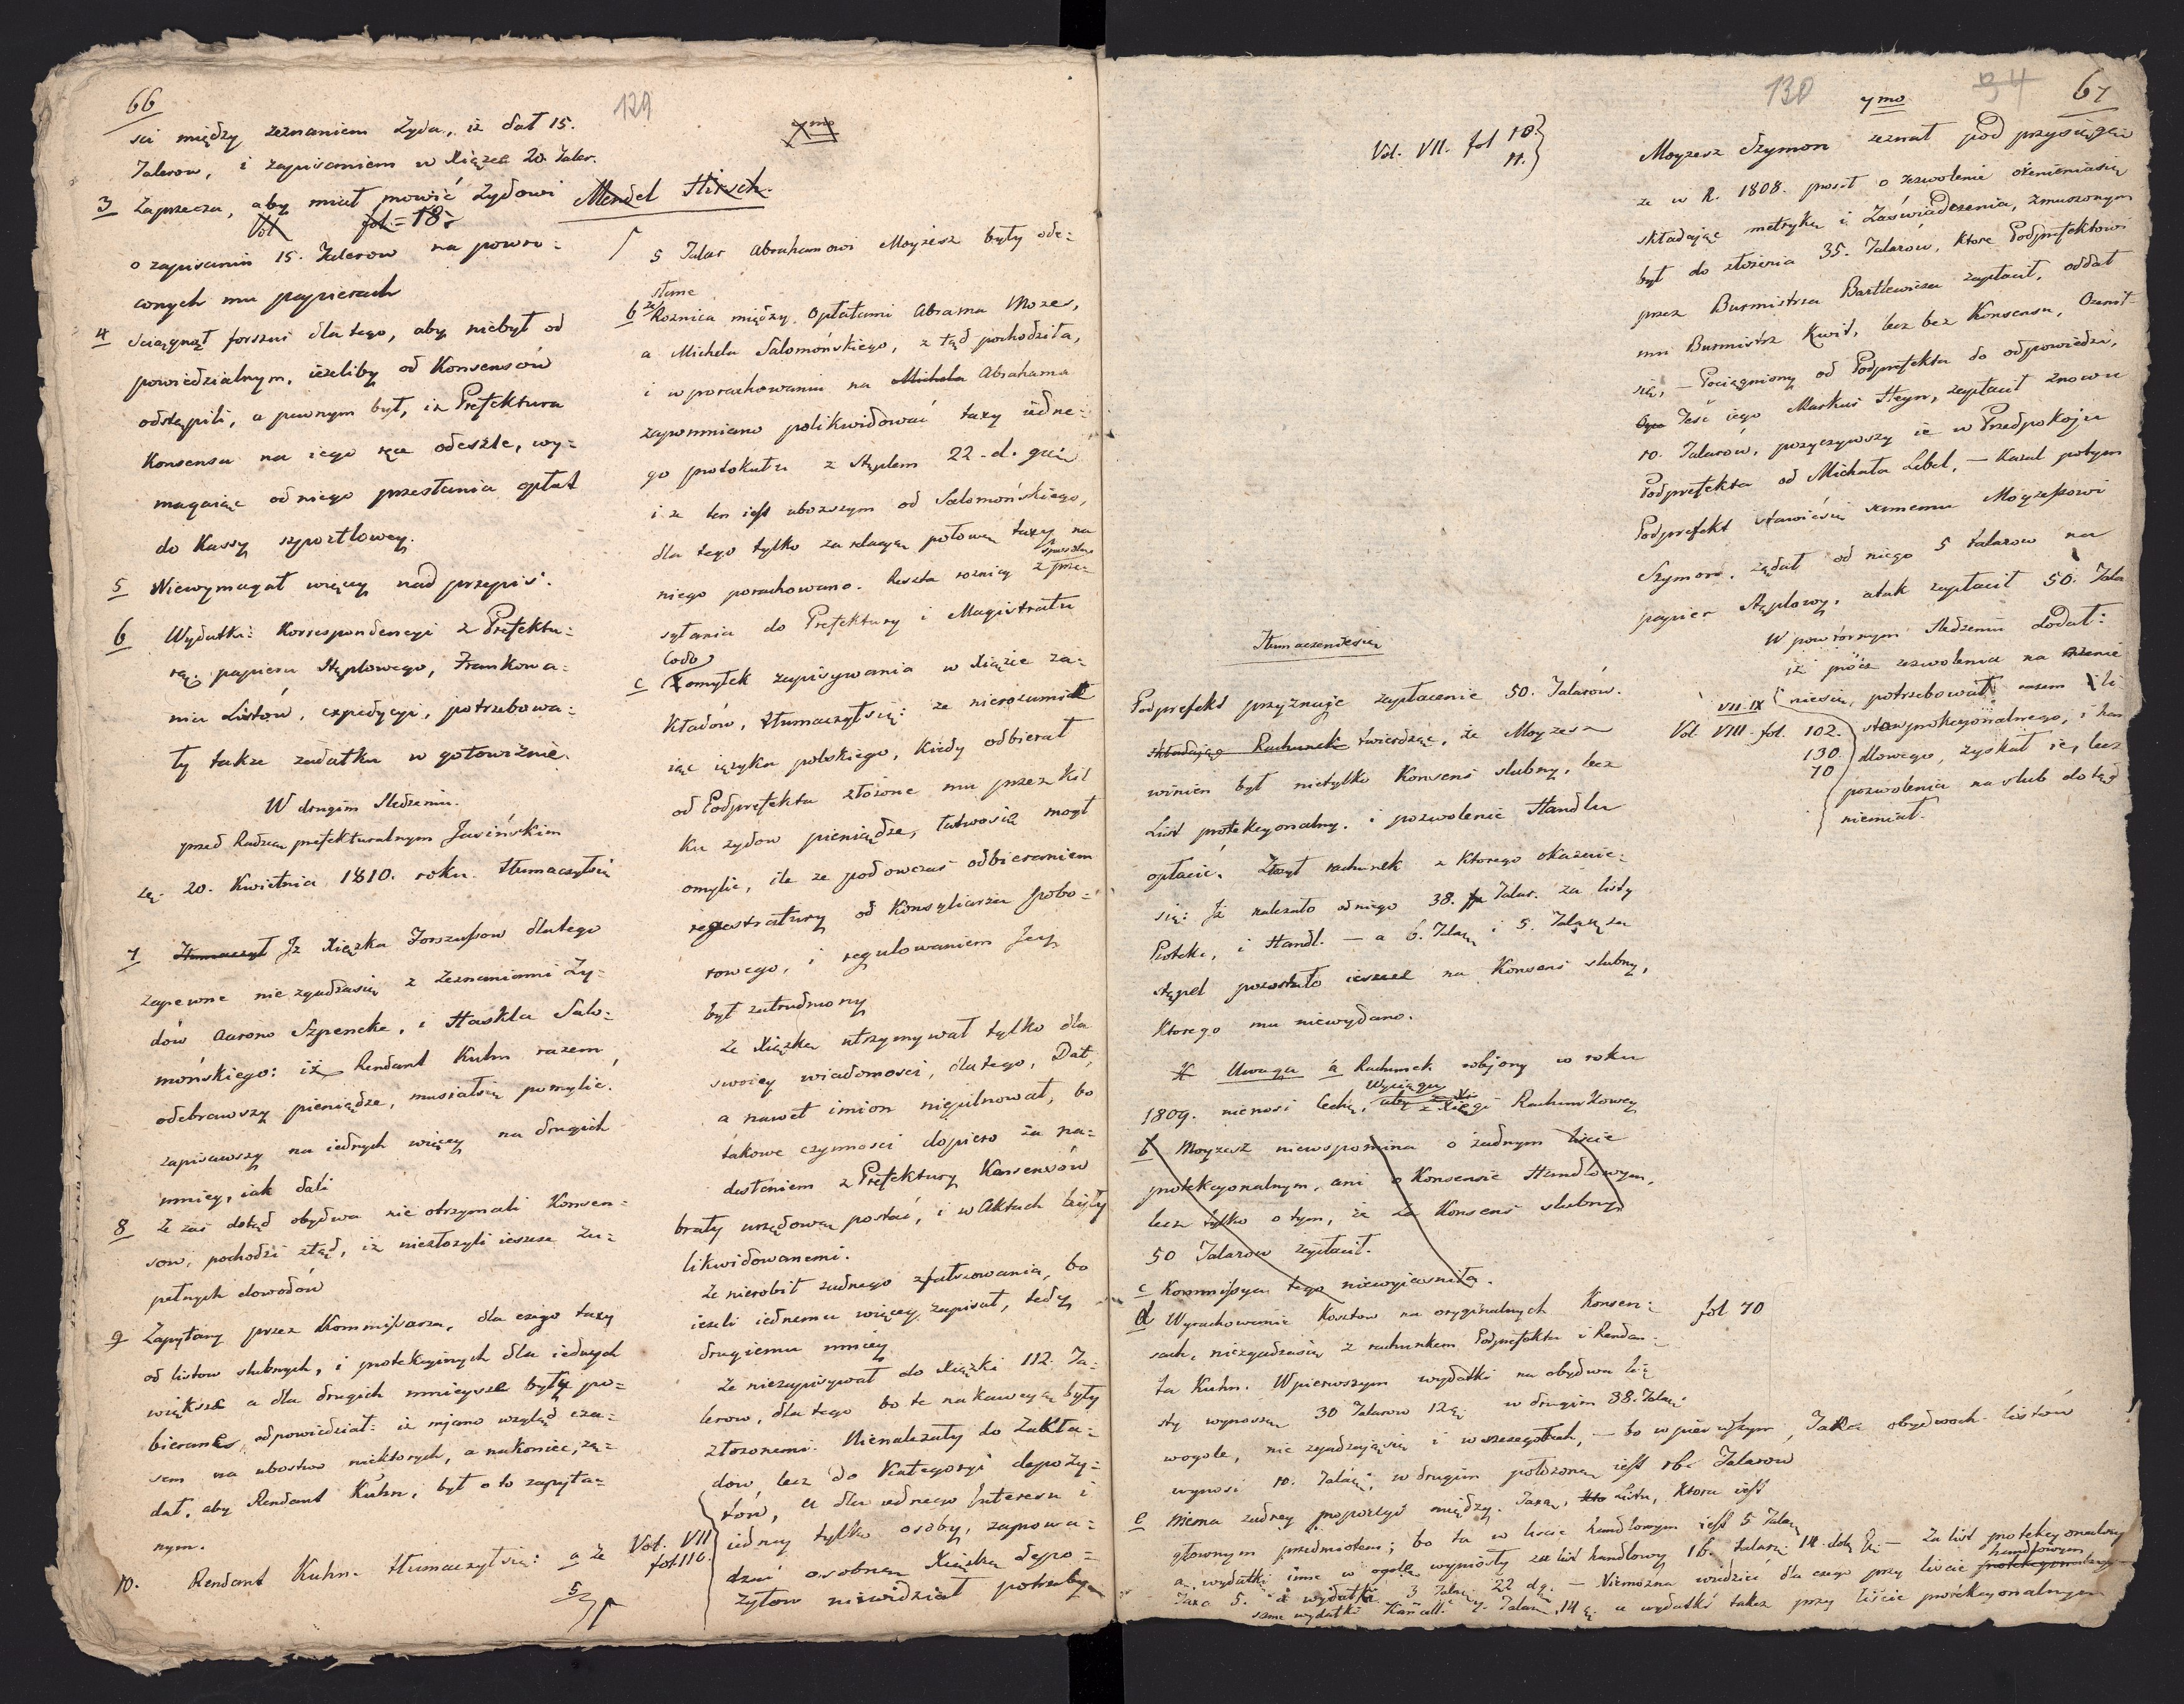 66
129
sci między zeznaniem Żyda, iż dał 15.
Talerow, i zapisaniem w Xiążce 20. Taler.
3 Zaprzecza, aby miał mowić Żydowi
Vol fol = 18.
o zapisaniu 15. Talerow na powro=
conych mu papierach
4 Sciągnął forszus dla tego, aby niebył od
powiedzialnym, ieżeliby od Konsensów
odstąpili, a pewnym był, iż Prefektura
Konsensa na iego ręce odeszle, wy=
magaiąc od niego przesłania opłat
do Kassy szportlowey.
5 Niewymagał więcey nad przepis.
6 Wydatki: Korrespondencyi z Prefektu=
rą, papieru stęplowego, Frankowa=
nia Listów, expedycyi, potrzebowa=
ły także zadatku w gotowiznie.
W drugim Sledzeniu.
przed Radzcą prefekturalnym Jasińskim
20. Kwietnia 1810. roku tłumaczył się
7 Tłumaczył Iż Xiążka Forszusow dlatego
zapewne nie zgadza się z Zeznaniami Ży=
dów Aarona Szpencke, i Haskla Salo=
mońskiego: iż Rendant Kuhn razem
odebrawszy pieniądze, musiał się pomylić.
zapisawszy na iednych więcey na drugich
mniey, iak dali
8 Że zaś dotąd obydwa nie otrzymali Konsen=
sow, pochodzi ztąd, iż niezłożyli ieszcze zu=
pełnych dowodów
9 Zapytany przez Kommissarza, dla czego taxy
od listow slubnych, i protekcyinych dla iednych
większe a dla drugich mnieysze były po=
bierane, odpowiedział: iż miano wzgląd cza=
sem na ubostwo niektorych, a nakoniec, żą=
dał, aby Rendant Kuhn, był o to zapyta=
nym.
10. Rendant Kuhn. tłumaczył się: a że
5
7mo
Mendel Hirsch.
5 Talar Abrahamowi Moyzesz były ode=
słane
b że Roznica między Opłatami Abrama Mozes,
a Michela Salomońskiego, z tąd pochodziła,
i w porachowaniu na Michela Abrahama
zapomniano polikwidować taxy iedne=
go protokułu z stęplem 22. d. gr.
i że ten iest uboższym od Salomońskiego,
dla tego tylko za relacyą połowę taxy na
niego porachowano. Reszta roznicy z prze=
syłania do Prefektury i Magistratu
Codo
c Pomyłek zapisywania w Xiążce za=
kładów, tłumaczył się: że nierozumie
iąc ięzyka polskiego, kiedy odbierał
od Podprefekta złożone mu przez kil
ku żydow pieniądze, łatwo się mogł
omylić, ile że podowczas odbieraniem
regestratury od Konsyliarza pobo=
rowego, i regulowaniem Jey
był zatrudniony
Że Xiążkę utrzymywał tylko dla
swoiey wiadomosci, dla tego, Dat,
a nawet imion niepilnował, bo
takowe czynnosci dopiero za na=
desłaniem z Prefektury Konsensów
brały urzędową postać, i w Aktach były
likwidowanemi.
Że nierobił żadnego zfałszowania, bo
ieżeli iednemu więcey zapisał, tedy
drugiemu mniey
Że niezapisywał do Xiążki 112. Ta=
lerow, dla tego bo te na kaucyą były
złożonemi. Nienależały do Zakła=
dow, lecz do Kategoryi depozy=
tów, a dla iednego Interesu i
Vol. VII
fol. 110.
iedney tylko osoby, zaprowa=
dzać osobnę Xiążkę depo=
zytow niewidział potrzeby
130
34
67
7mo
Vol. VII. fol 10.
11.
Moyzesz Szymon zeznał pod przysięgą
że w R. 1808. prosił o zezwolenie ożenieniasię
składaiąc metrykę i Zaświadczenia, zmuszonym
był do złożenia 35. Talarów, ktore Podprefektowi
przez Burmistrza Bartlewicza zapłacił, oddał
mu Burmistrz Kwit, lecz bez Konsensu, Ożenił
się, — Pociągniony od Podprefekta do odpowiedzi,
Teść iego Markus Heyn, zapłacił znowu
10. Talarów, pożyczywszy ie w Przedpokoju
Podprefekta od Michała Lebel, — Kazał potym
Podprefekt stawić się samemu Moyzeszowi
Szymon. żądał od niego 5 talarow na
papier stęplowy, atak zapłacił 50. Tala
W powtornym Sledzeniu dodał:
iż prócz zezwolenia na ożenie
nie się, potrzebował razem li
stu protekcyonalnego, i han
dlowego, zyskał ie, lecz
pozwolenia na slub dotąd
niemiał.
VII. IX
Vol. VIII. fol. 102.
130.
70
Tłumaczenie się
Podprefekt przyznaje zapłacenie 50. Talarów.
składając Rachunek twierdząc, że Moyzesz
winien był nietylko Konsens slubny, lecz
List protekcyonalny. i pozwolenie Handlu
opłacić. Złożył rachunek z ktorego okazuie=
się: Iż należało od niego 38. Talar. za listy
Protekc, i Handl. — a 6. Talar i 5. Talar za
stępel pozostało ieszcze na Konsens slubny,
ktorego mu niewydano.
Uwaga a Rachunek robiony w roku
1809. nienosi Cechy, Wyciągu z Xięgi Rachunkowey
b Moyzesz niewspomina o żadnym liscie
protekcyonalnym, ani o Konsensie Handlowym,
lecz tylko o tym, że za Konsens slubny
50 Talarow zapłacił.
c Kommissya tego niewyiasniła.
d Wyrachowanie Kosztow na oryginalnych Konsen=
fol 70
sach, niezgadzasię z rachunkiem Podprefekta i Rendan=
ta Kuhn. W pierwszym wydatki na obydwa li
sty wynoszą 30 Talarow 12 w drugim 38. Talar.
wogole, nie zgadzaiąsię i w szczegołach, — bo w pierwszym, Taxa obydwoch listów
wynosi 10. Talar; w drugim położona iest 16. Talarow
e niema żadney proporcyi między. Taxą, Listu, ktora iest
głownym przedmiotem; bo ta w liscie handlowym iest 5 Talar
a wydatki inne w ogole wyniosły za list handlowy 16. talar: 14. — Za list protekcyonalny
Taxa 5. a wydatki 3 Talar: 22 dg. — Niemożna wiedzieć dla czego przy liscie handlowym
same wydatki Kancell. 7. Talar, 14 a wydatki także przy liscie protekcyonalnym